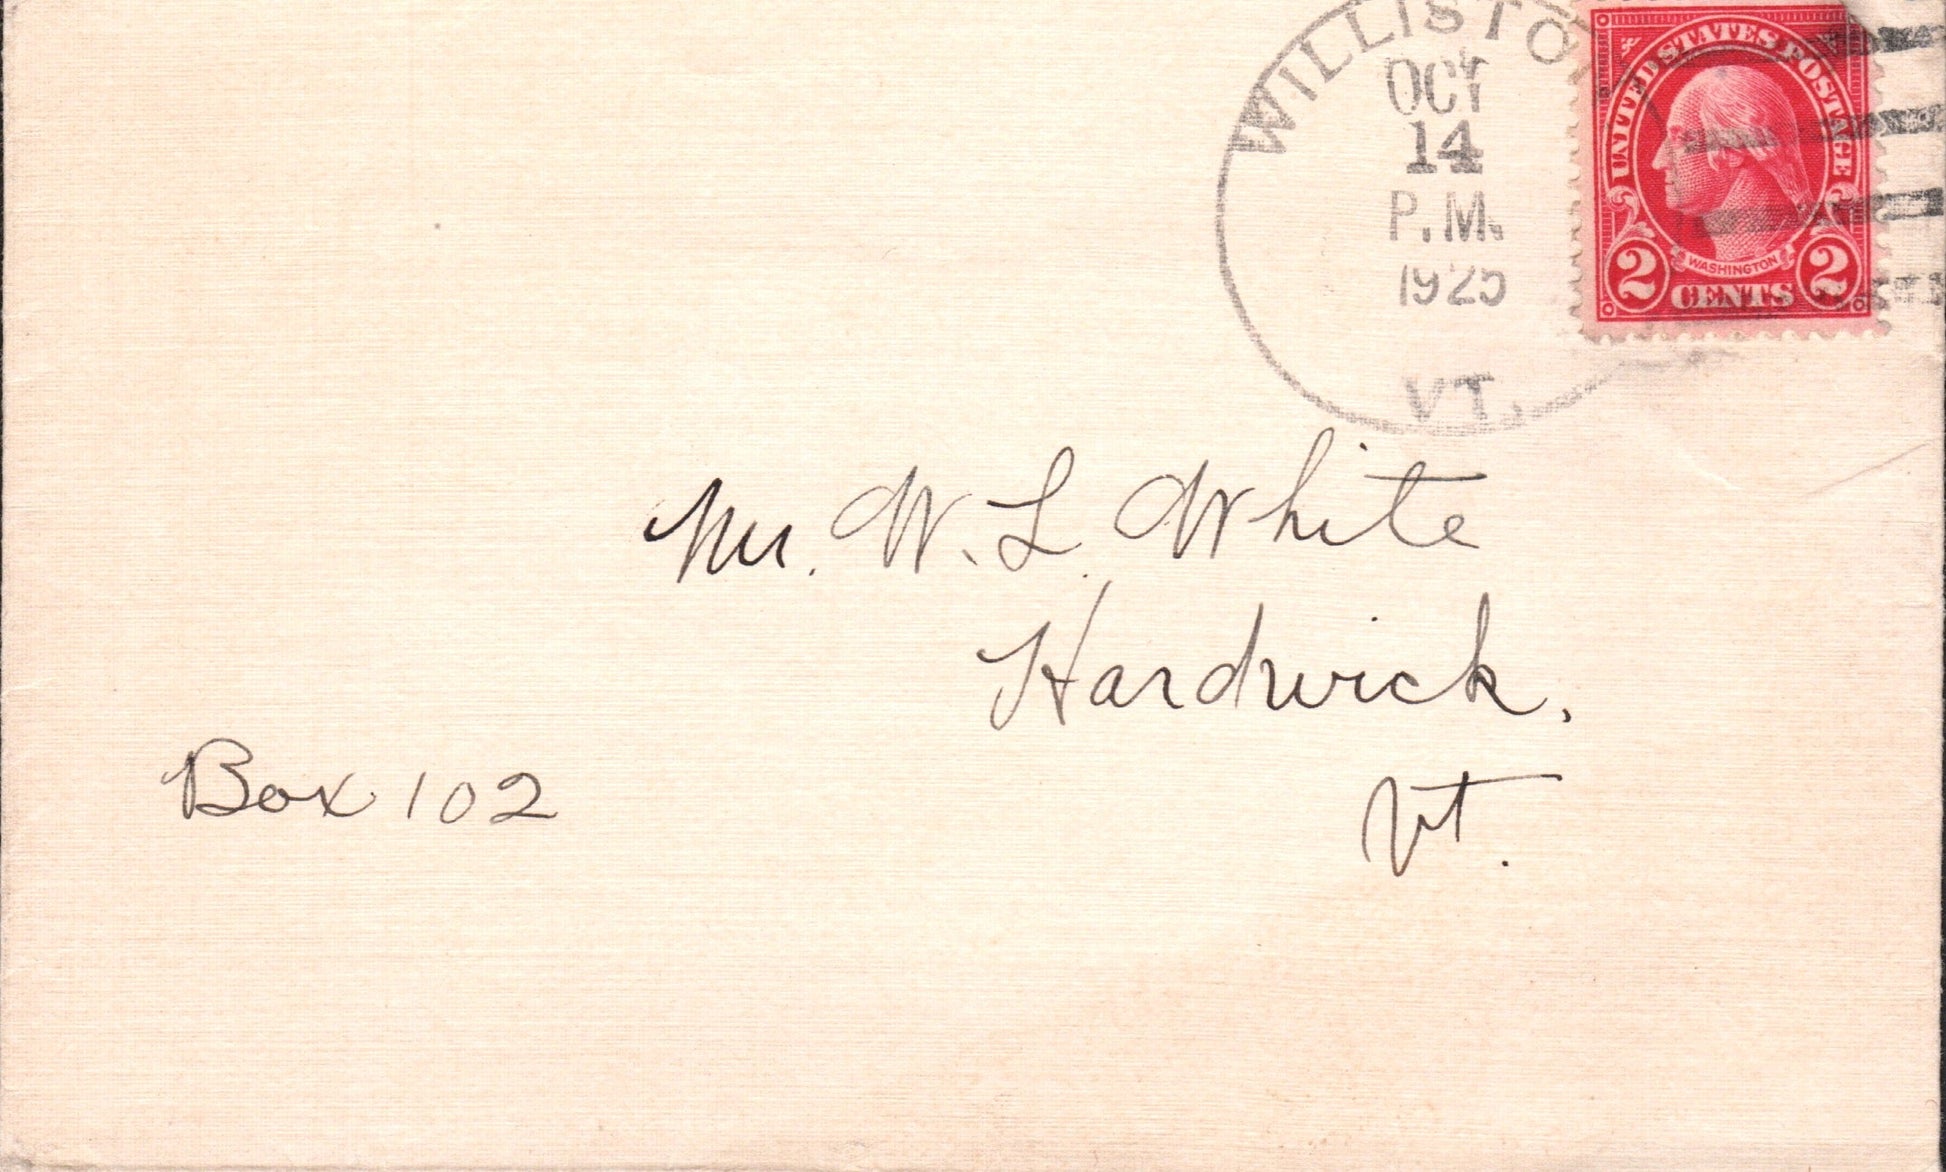 WILLISTON
OCT
14
P.M.
1925
VT.
UNITED STATES POSTAGE
WASHINGTON
2 CENTS 2
Mr. W. L. White
Hardwick,
Vt.
Box 102